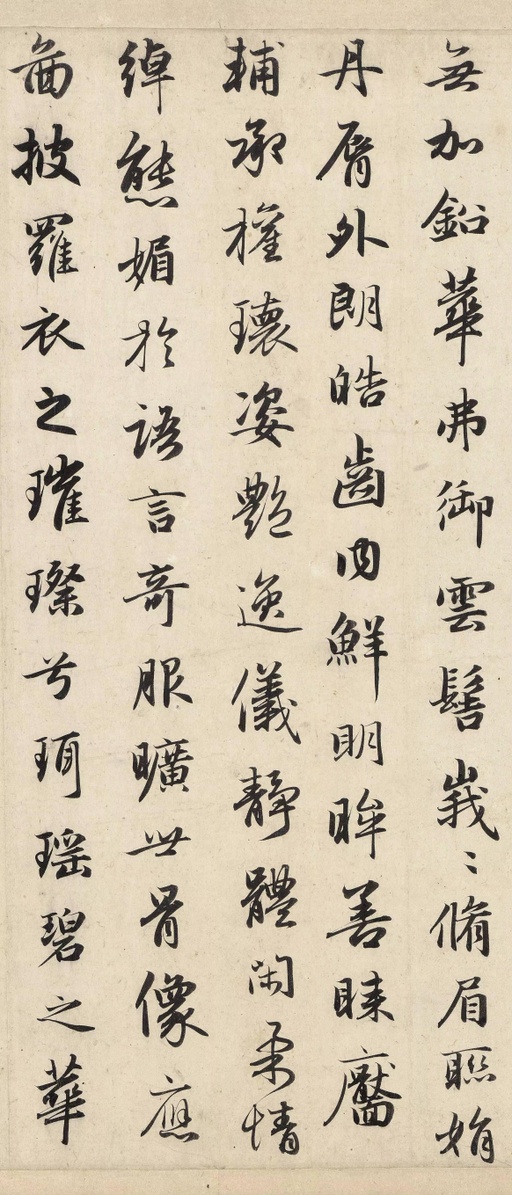 無加鉛華弗御雲髻峩〻脩眉聯娟
丹脣外朗皓齒內鮮明眸善睞靨
輔承權瓌姿艶逸儀靜體閑柔情
綽態媚於語言奇服曠世骨像應
啚披羅衣之璀璨兮珥瑤碧之華